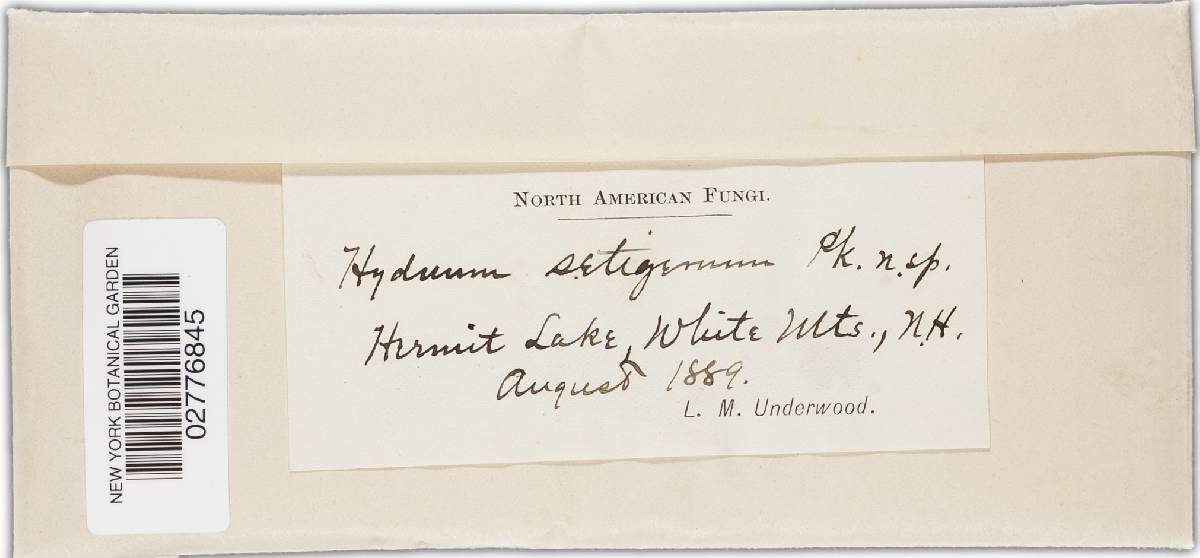 NORTH AMERICAN FUNGI.
Hydnum setigerum Pk. n. sp.
Hermit Lake, White Mts., N.H.
August 1889.
L. M. Underwood.
NEW YORK BOTANICAL GARDEN
02776845